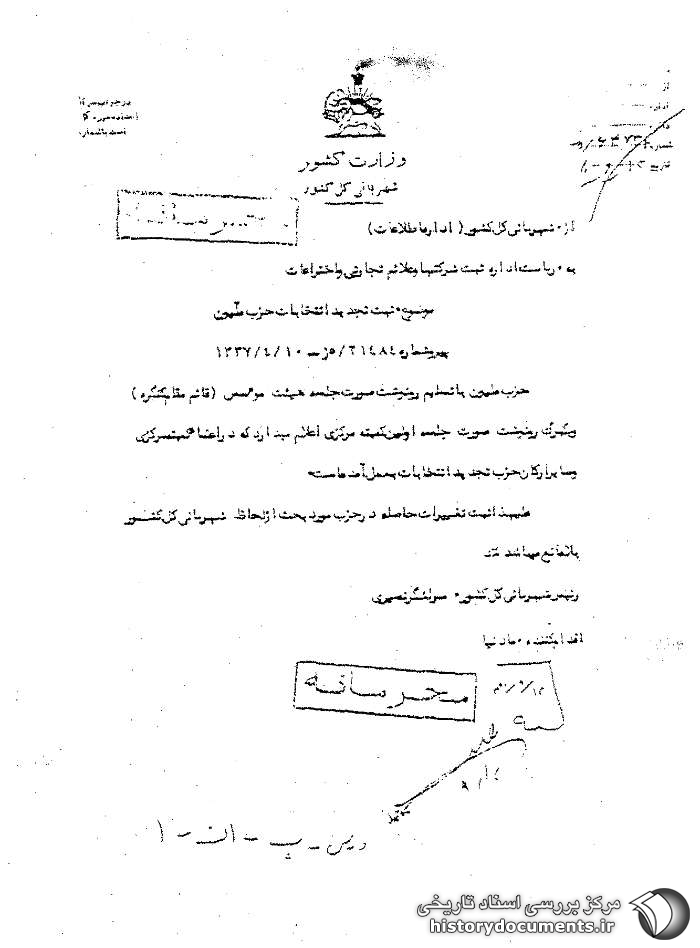 از
شماره
تاریخ
وزارت کشور
شهربانی کل کشور
از: شهربانی کل کشور (اداره اطلاعات)
به: ریاست اداره ثبت شرکتها و علائم تجارتی و اختراعات
موضوع: ثبت تجدید انتخابات حزب میهن
پیرو شماره ۲۱۴۸۴/۵ ـ ۱۳۳۷/۴/۱۰
حزب میهن با تسلیم رونوشت صورت جلسه هیئت موسس (قائم مقام کنگره)
و یکبرگ رونوشت صورت جلسه اولین کمیته مرکزی اعلام میدارد که در اعضا کمیته مرکزی
و سایر ارکان حزب تجدید انتخابات بعمل آمده است.
علیهذا ثبت تغییرات حاصله در حزب مورد بحث از لحاظ شهربانی کل کشور
بلامانع میباشد
رئیس شهربانی کل کشور. سرلشگر نصیری
اقدام کننده
محرمانه
۹/۱۴
الف - ۱
مرکز بررسی اسناد تاریخی
historydocuments.ir